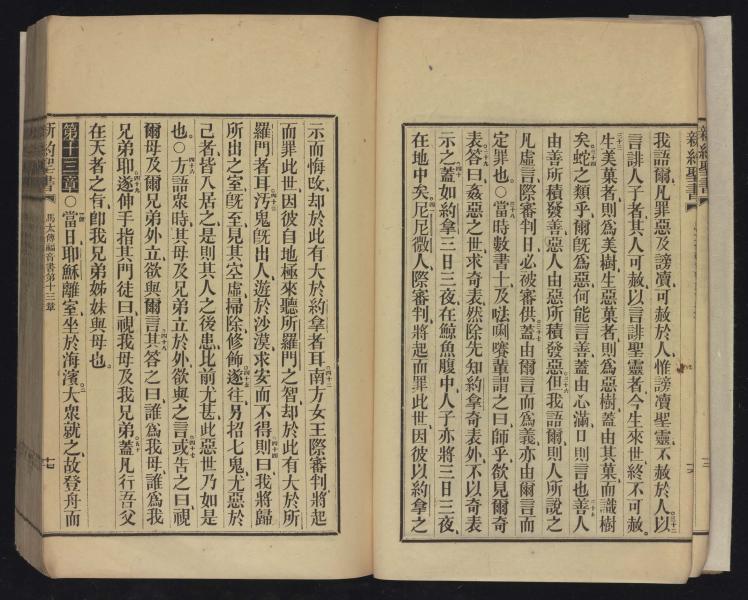 新約聖書
我語爾凡罪惡及謗凟可赦於人惟謗凟聖靈不赦於人三十二以
言誹人子者其人可赦以言誹聖靈者今生來世終不可赦
三十三生美菓者則爲美樹生惡菓者則爲惡樹蓋由其菓而識樹
矣三十四蛇之類乎爾旣爲惡何能言善蓋由心滿口則言也三十五善人
由善所積發善惡人由惡所積發惡三十六但我語爾則人所說之
凡虛言際審判日必被審供三十七蓋由爾言而爲義亦由爾言而
定罪也○三十八當時數書士及唎輩謂之曰師乎欲見爾奇
表三十九答曰姦惡之世求奇表然除先知約拿奇表外不以奇表
示之四十蓋如約拿三日三夜在鯨魚腹中人子亦將三日三夜
在地中矣四一尼尼微人際審判將起而罪此世因彼以約拿之
示而悔改却於此有大於約拿者耳四十二南方女王際審判將起
而罪此世因彼自地極來聽所羅門之智却於此有大於所
羅門者耳四十三汚鬼旣出人遊於沙漠求安而不得四十四則曰我將歸
所出之室旣至見其空虛掃除修飾四十五遂往另招七鬼尤惡於
己者皆入居之是則其人之後患比前尤甚此惡世乃如是
也○四十六方語衆時其母及兄弟立於外欲與之言四十七或告之曰視
爾母及爾兄弟外立欲與爾言四十八其答之曰誰爲我母誰爲我
兄弟耶四十九遂伸手指其門徒曰視我母及我兄弟五十蓋凡行吾父
在天者之旨卽我兄弟姊妹與母也
第十三章○當日耶穌離室坐於海濱二大衆就之故登舟而
新約聖書 馬太傳福音書第十三章 十七